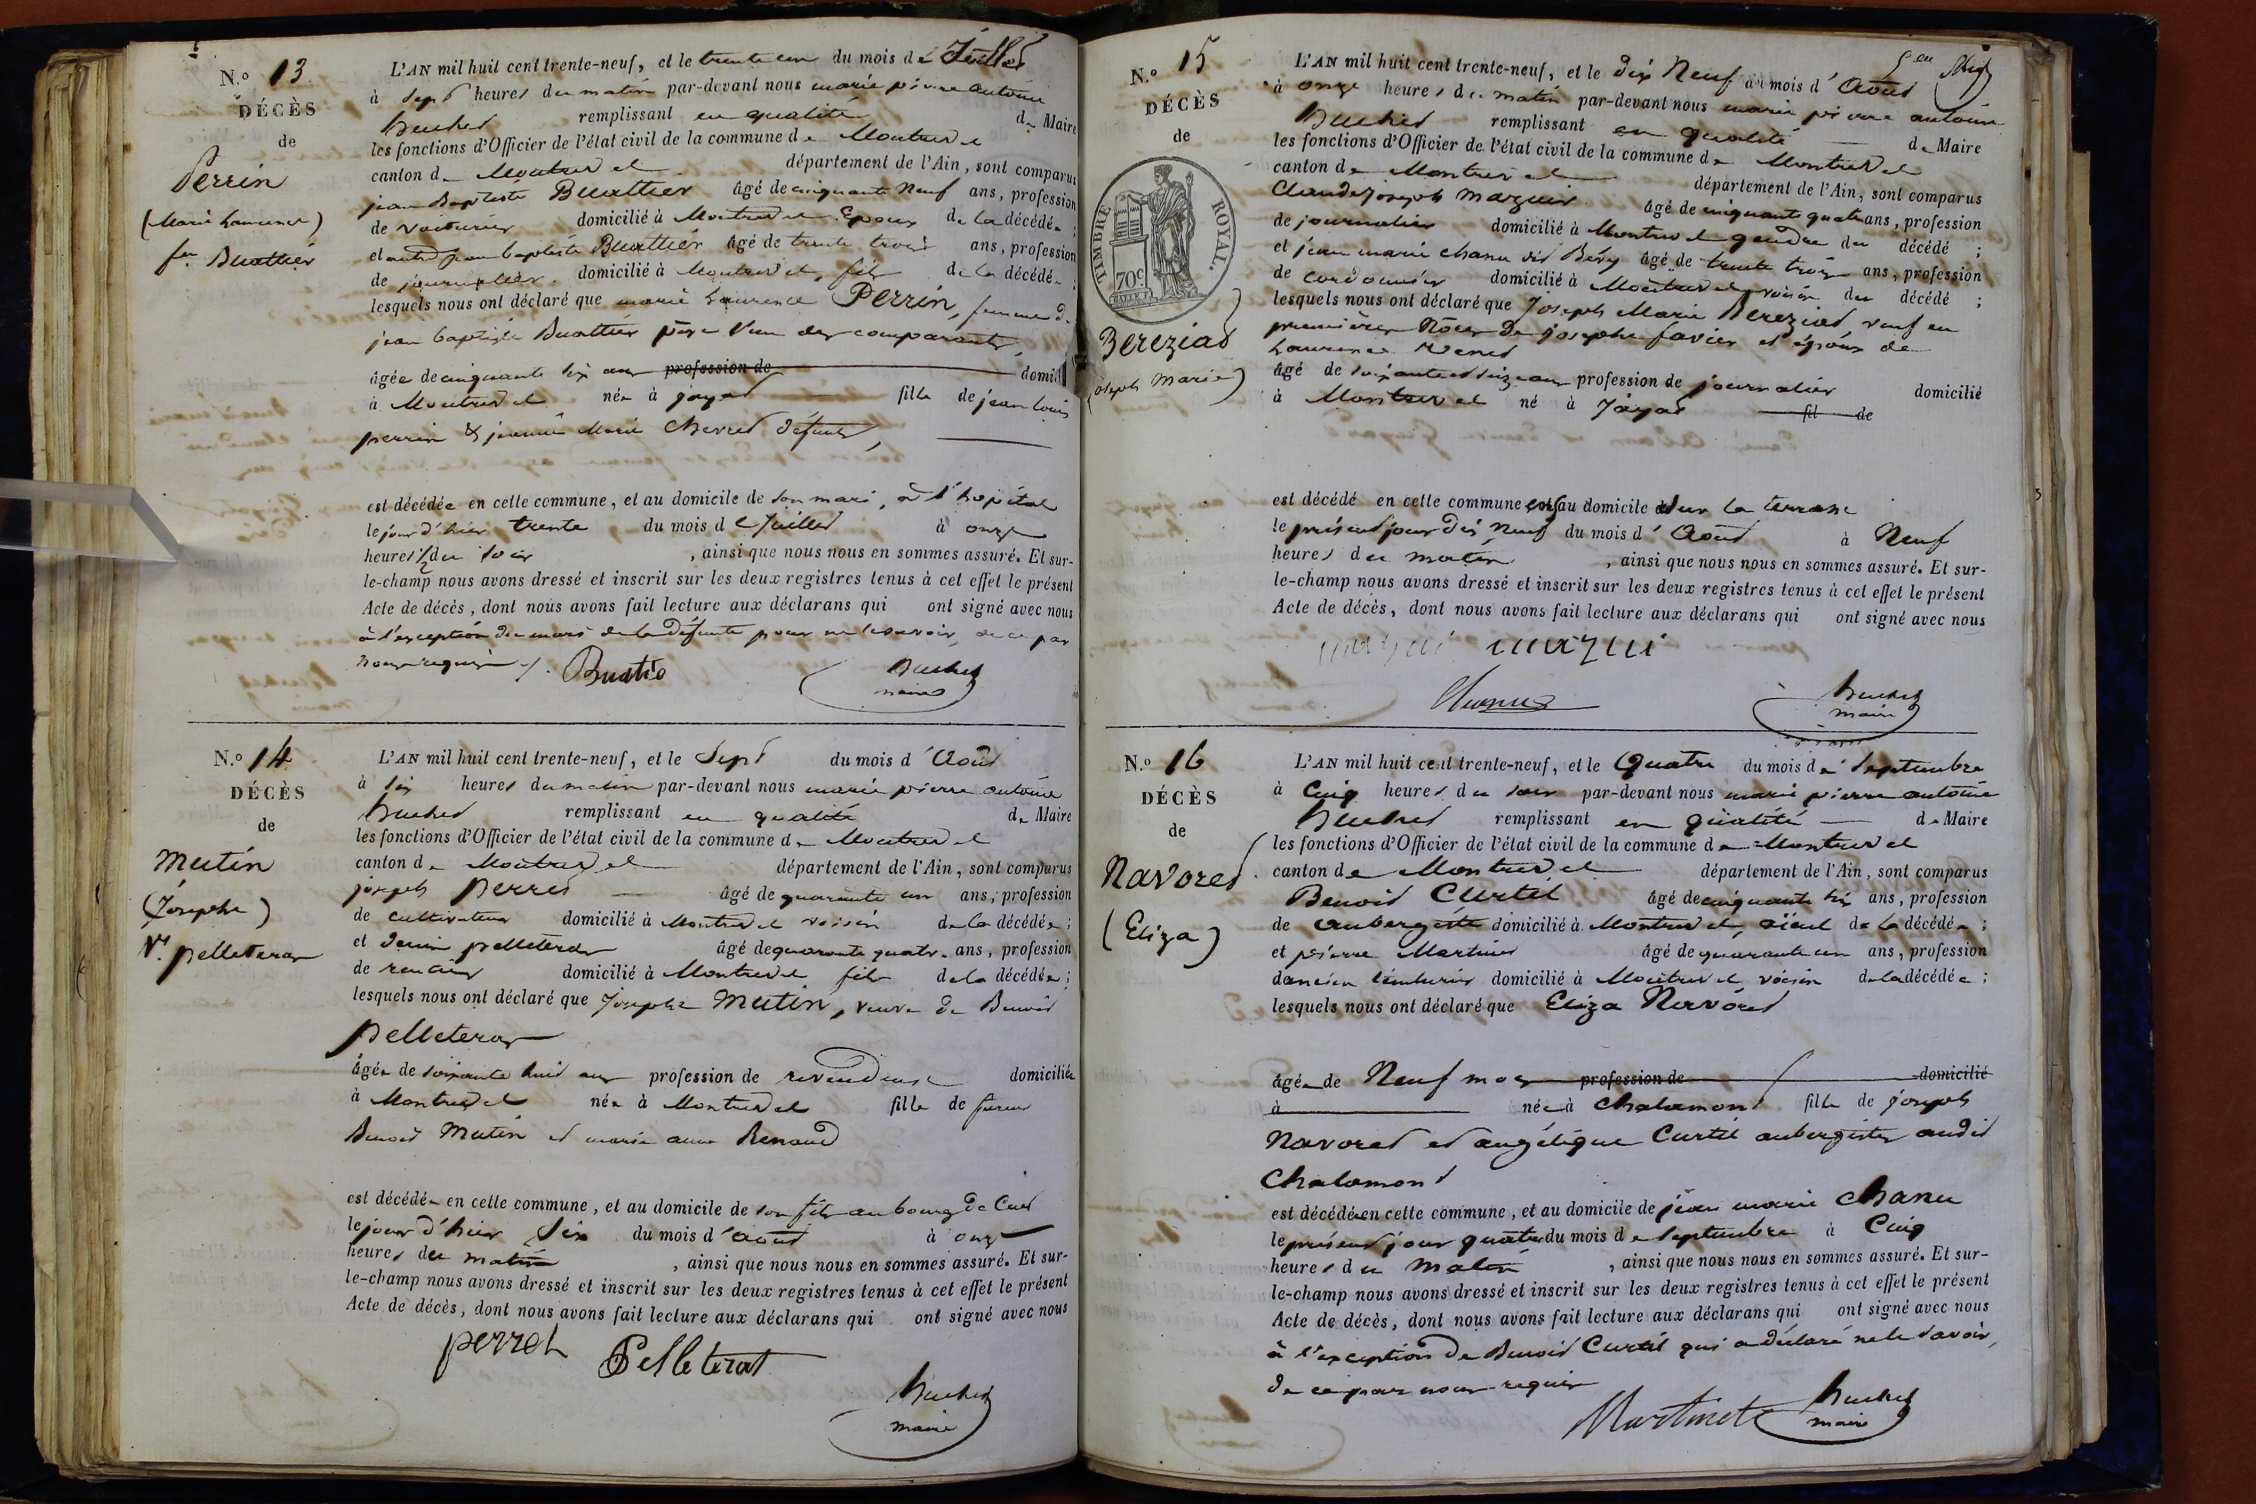 N.º 13
DÉCÈS
de
Perrin
(Marie Laurence)
fe. Buattier
L'AN mil huit cent trente-neuf, et le trente un du mois de Juillet
à sept heures du matin par-devant nous marie pierre antoine
huchet remplissant en qualité de Maire
les fonctions d'Officier de l'état civil de la commune de Montrevel
canton de Montrevel département de l'Ain, sont comparus
jean Baptiste Buattier âgé de cinquante neuf ans, profession
de voiturier domicilié à Montrevel Epoux de la décédée ;
et autre jean baptiste Buattier âgé de trente trois ans, profession
de journalier domicilié à Montrevel, fils de la décédée ;
lesquels nous ont déclaré que marie Laurence Perrin, femme de
jean baptiste Buattier père l'un des comparants,
âgée de cinquante six ans profession de domici
à Montrevel née à jayat fille de jean louis
perrin & jeanne Marie Chevret défunts,
est décédée en cette commune, et au domicile de son mari, à l'hopital
le jour d'hier trente du mois de Juillet à onze
heures 1/2 du soir , ainsi que nous nous en sommes assuré. Et sur-
le-champ nous avons dressé et inscrit sur les deux registres tenus à cet effet le présent
Acte de décès, dont nous avons fait lecture aux déclarans qui ont signé avec nous
à l'exception du mari de la défunte pour ne le savoir, de ce par
nous requis ./.
Buatié
huchet
maire
N.º 14
DÉCÈS
de
Mutin
(Josephe)
Ve. pelleterat
L'AN mil huit cent trente-neuf, et le Sept du mois d'Août
à six heures du matin par-devant nous marie pierre antoine
huchet remplissant en qualité de Maire
les fonctions d'Officier de l'état civil de la commune de Montrevel
canton de Montrevel département de l'Ain, sont comparus
joseph Perret âgé de quarante un ans, profession
de cultivateur domicilié à Montrevel voisin de la décédée ;
et Denis pelleterat âgé de quarante quatre ans, profession
de domicilié à Montrevel fils de la décédée ;
lesquels nous ont déclaré que Josephe Mutin, veuve de Benoit
pelleterat
âgée de soixante huit ans profession de revendeuse domiciliée
à Montrevel née à Montrevel fille de
Benoit Mutin et marie anne Renaud
est décédée en cette commune, et au domicile de son fils au bourg de Cuet
le jour d'hier Six du mois d'août à onze
heures du matin , ainsi que nous nous en sommes assuré. Et sur-
le-champ nous avons dressé et inscrit sur les deux registres tenus à cet effet le présent
Acte de décès, dont nous avons fait lecture aux déclarans qui ont signé avec nous
perret
Pelleterat
huchet
maire
N.º 15
DÉCÈS
de
TIMBRE ROYAL.
70c
Bereziat
(Joseph Marie)
L'AN mil huit cent trente-neuf, et le dix Neuf du mois d'Août
à onze heures du matin par-devant nous marie pierre antoine
huchet remplissant en qualité de Maire
les fonctions d'Officier de l'état civil de la commune de Montrevel
canton de Montrevel département de l'Ain, sont comparus
Claude Joseph Mazuir âgé de cinquante quatre ans, profession
de journalier domicilié à Montrevel gendre du décédé ;
et jean marie chanu dit Bevy âgé de trente trois ans, profession
de cordonnier domicilié à Montrevel, voisin du décédé ;
lesquels nous ont déclaré que Joseph Marie Bereziat, veuf en
premières Nôces de josephe favier et époux de
Laurence
âgé de soixante et seize ans profession de journalier domicilié
à Montrevel né à Jayat fil de
est décédé en cette commune, et au domicile de sur la terrasse
le présent jour dix neuf du mois d'Août à Neuf
heures du matin , ainsi que nous nous en sommes assuré. Et sur-
le-champ nous avons dressé et inscrit sur les deux registres tenus à cet effet le présent
Acte de décès, dont nous avons fait lecture aux déclarans qui ont signé avec nous
mazui mazui
Chanu
huchet
maire
N.º 16
DÉCÈS
de
Navoret
(Eliza)
L'AN mil huit cent trente-neuf, et le Quatre du mois de Septembre
à Cinq heures du soir par-devant nous marie pierre antoine
huchet remplissant en qualité de Maire
les fonctions d'Officier de l'état civil de la commune de Montrevel
canton de Montrevel département de l'Ain, sont comparus
Benoit Curtil âgé de cinquante six ans, profession
de aubergiste domicilié à Montrevel, aïeul de la décédée ;
et pierre Martinet âgé de quarante un ans, profession
d'ancien teinturier domicilié à Montrevel, voisin de la décédée ;
lesquels nous ont déclaré que Eliza Navoret
âgée de Neuf mois profession de domicilié
à née à Chalamont fille de joseph
Navoret et angélique Curtil aubergistes audit
Chalamont
est décédée en cette commune, et au domicile de jean marie Chanu
le présent jour quatre du mois de Septembre à Cinq
heures du Matin , ainsi que nous nous en sommes assuré. Et sur-
le-champ nous avons dressé et inscrit sur les deux registres tenus à cet effet le présent
Acte de décès, dont nous avons fait lecture aux déclarans qui ont signé avec nous
à l'exception de Benoit Curtil qui a déclaré ne le savoir,
de ce par nous requis
Martinet
huchet
maire